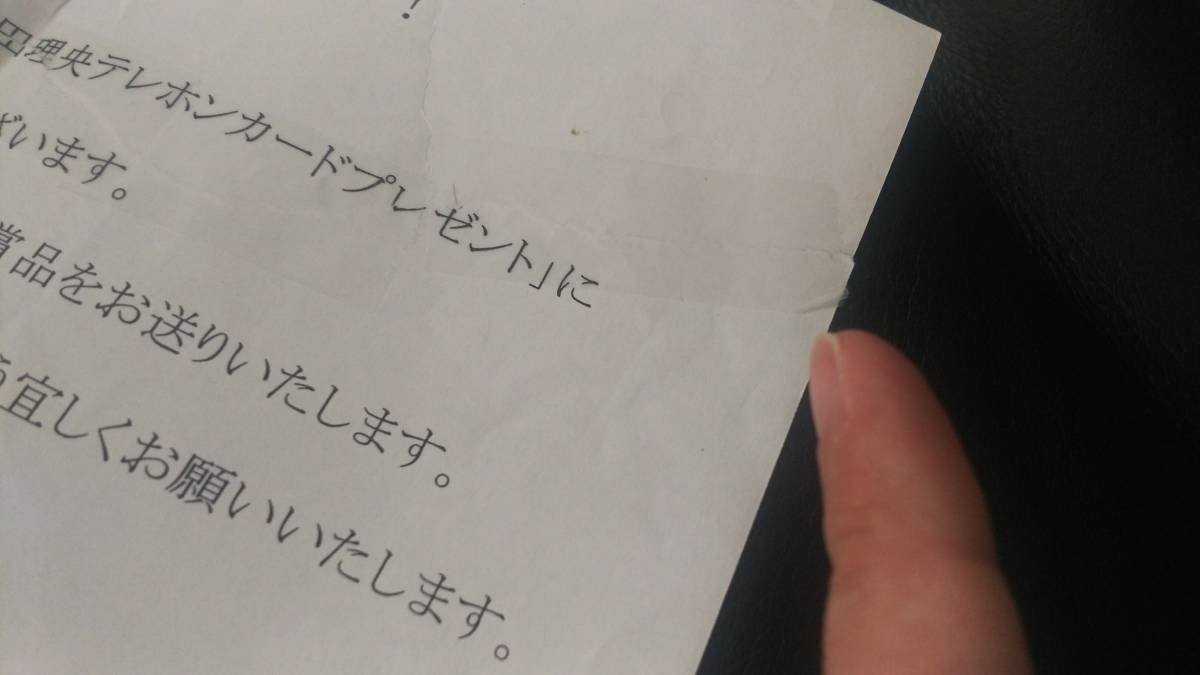 ！
理央テレホンカードプレゼント」に
ざいます。
賞品をお送りいたします。
宜しくお願いいたします。